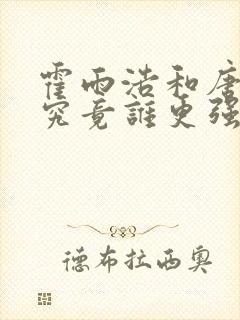 霍雨浩和唐
究竟誰更强
德布拉西奥